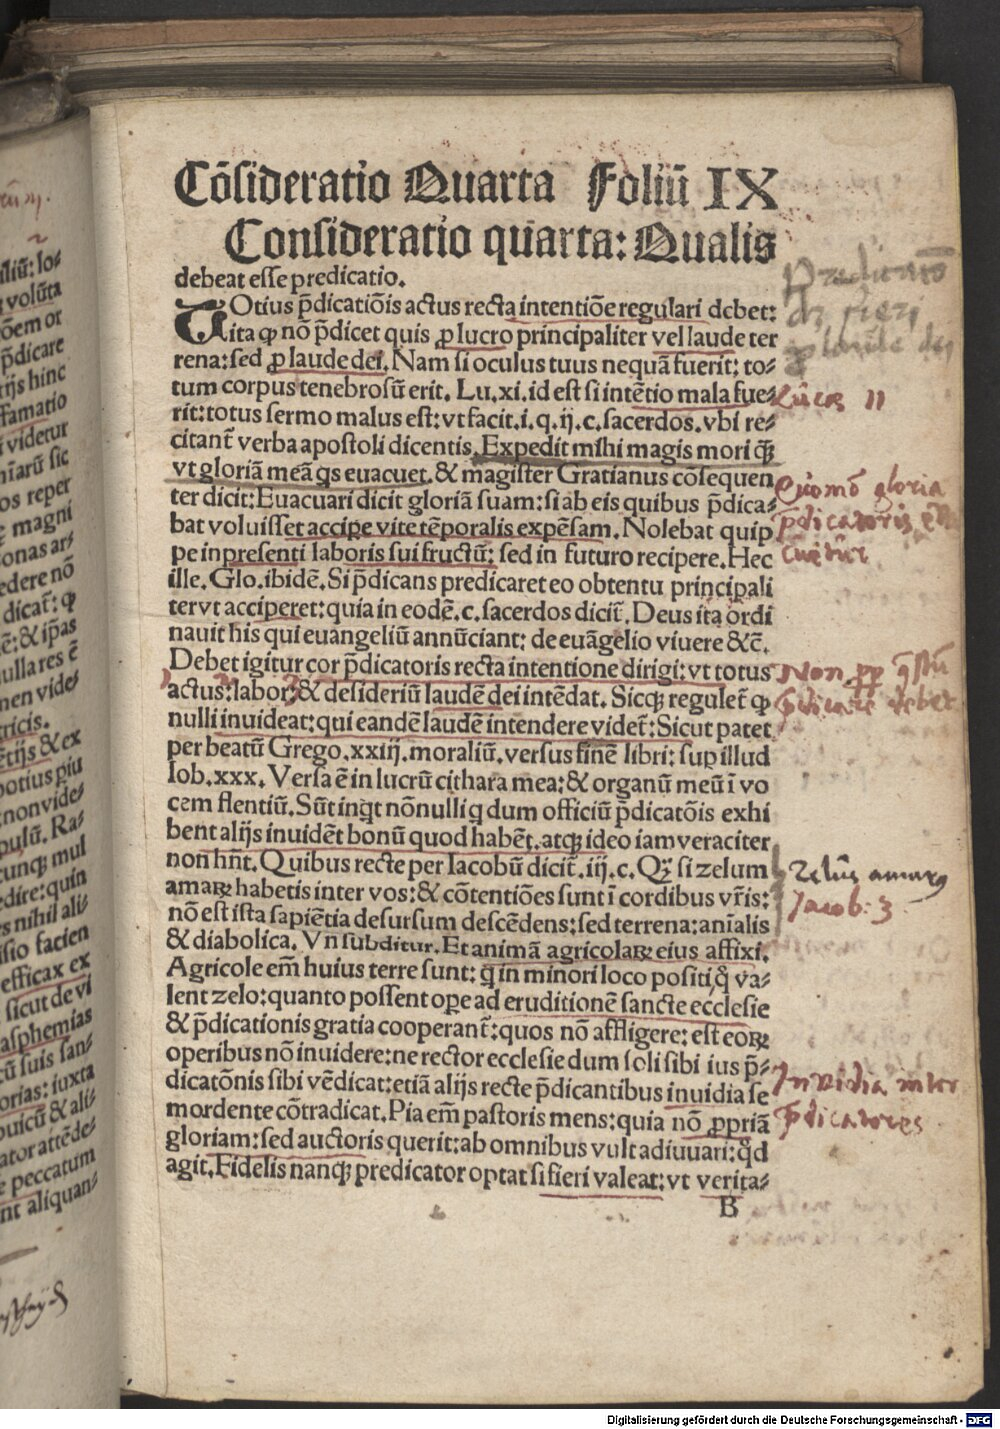 Cōsideratio Quarta Foliū IX
Consideratio quarta: Qualis
debeat esse predicatio.
TOtius p̄dicatiōis actus recta intentiōe regulari debet:
ita ꝙ nō p̄dicet quis ꝓ lucro principaliter vel laude ter
rena: sed ꝓ laude dei. Nam si oculus tuus nequā fuerit: to⸗
tum corpus tenebrosū erit. Lu. xi. id est si intētio mala fue⸗
rit: totus sermo malus est: vt facit. i. q. ij. c. sacerdos. vbi re⸗
citant̄ verba apostoli dicentis. Expedit mihi magis mori ꝙ̄
vt gloriā meā qs euacuet. & magister Gratianus cōsequen
ter dicit: Euacuari dicit gloriā suam: si ab eis quibus p̄dica⸗
bat voluisset accipe vite tēporalis expēsam. Nolebat quip
pe in presenti laboris sui fructū: sed in futuro recipere. Hec
ille. Glo. ibidē. Si p̄dicans predicaret eo obtentu principali
ter vt acciperet: quia in eodē. c. sacerdos dicit̄. Deus ita ordi
nauit his qui euangeliū annūciant: de euāgelio viuere &c̄.
Debet igitur cor p̄dicatoris recta intentione dirigi: vt totus
actus: labor: & desideriū laudē dei intēdat. Sicqꝫ regulet̄ ꝙ
nulli inuideat: qui eandē laudē intendere videt̄: Sicut patet
per beatū Grego. xxiij. moraliū. versus finē libri: sup illud
Iob. xxx. Versa ē in lucrū cithara mea: & organū meū ī vo
cem flentiū. Sūt inq̄t nōnulli q dum officiū p̄dicatōis exhi
bent alijs inuidēt bonū quod habēt. atqꝫ ideo iam veraciter
non hn̄t. Quibus recte per Iacobū dicit̄. iij. c. Qꝫ si zelum
amaꝝ habetis inter vos: & cōtentiōes sunt ī cordibus vr̄is:
nō est ista sapiētia desursum descēdens: sed terrena: anīalis
& diabolica. Vn̄ subditur. Et animā agricolaꝝ eius affixi.
Agricole em̄ huius terre sunt: q̄ in minori loco positi q̄ va⸗
lent zelo: quanto possent ope ad eruditionē sancte ecclesie
& p̄dicationis gratia cooperant̄: quos nō affligere: est eoꝝ
operibus nō inuidere: ne rector ecclesie dum soli sibi ius p̄⸗
dicatōnis sibi vēdicat: etiā alijs recte p̄dicantibus inuidia se
mordente cōtradicat. Pia em̄ pastoris mens: quia nō ꝓpriā
gloriam: sed auctoris querit: ab omnibus vult adiuuari: qd̄
agit. Fidelis nanqꝫ predicator optat si fieri valeat: vt verita⸗
B
Predicatio
dꝫ fieri
ꝓ laude dei
Lucas 11
Quomō gloria
p̄dicatoris
Non ꝓp̄ q̄stū
p̄dicare debet
Zelus amarus
Jacob. 3
Inuidia inter
p̄dicatores
Digitalisierung gefördert durch die Deutsche Forschungsgemeinschaft - DFG